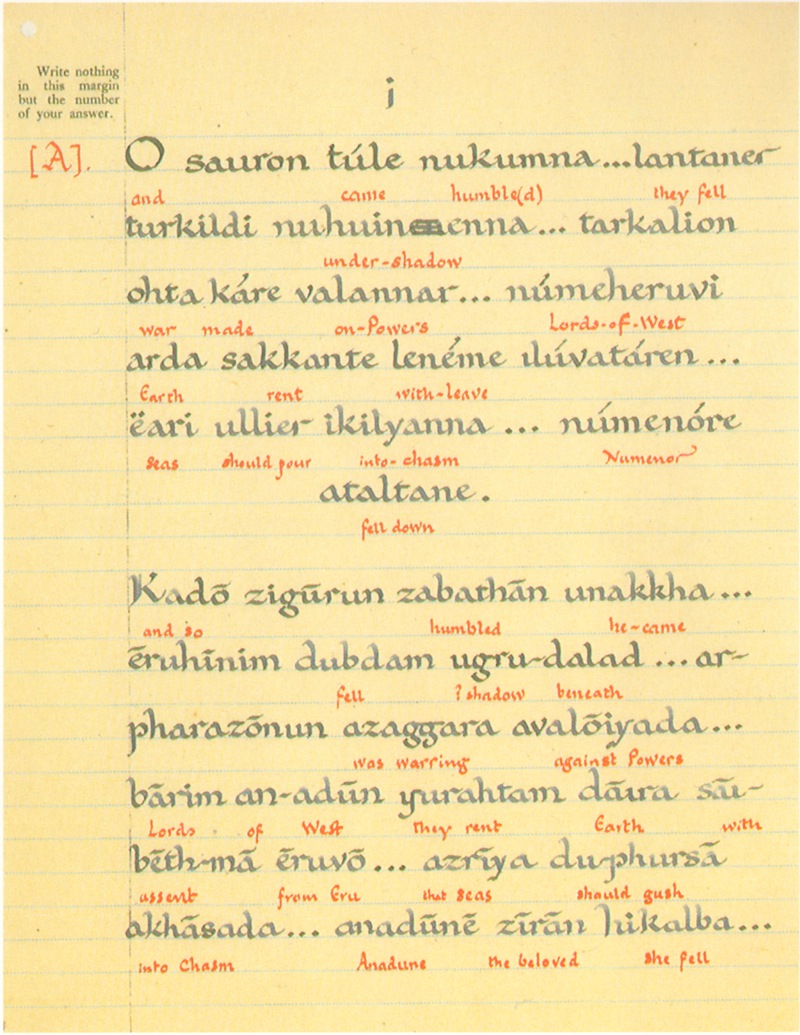 Write nothing
in this margin
but the number
of your answer.
i
[A].
O sauron túle nukumna...lantaner
and came humble(d) they fell
turkildi nuhuinenna... tarkalion
under-shadow
ohta káre valannar... númeheruvi
war made on-Powers Lords-of-West
arda sakkante lenéme ilúvatáren ...
Earth rent with-leave
ëari ullier ikilyanna ... númenóre
seas should pour into-chasm Numenor
ataltane.
fell down
Kadō zigūrun zabathān unakkha ...
and so humbled he-came
ēruhīnim dubdam ugru-dalad ... ar-
fell ?shadow beneath
pharazōnun azaggara avalōiyada ...
was warring against Powers
bārim an-adūn yurahtam dāira sāi-
Lords of West they rent Earth with
bēth-mā ēruvō ... azrīya du-phursā
assent from Eru that seas should gush
akhāsada ... anadūnē zīrān hikalba ...
into Chasm Anadune the beloved she fell